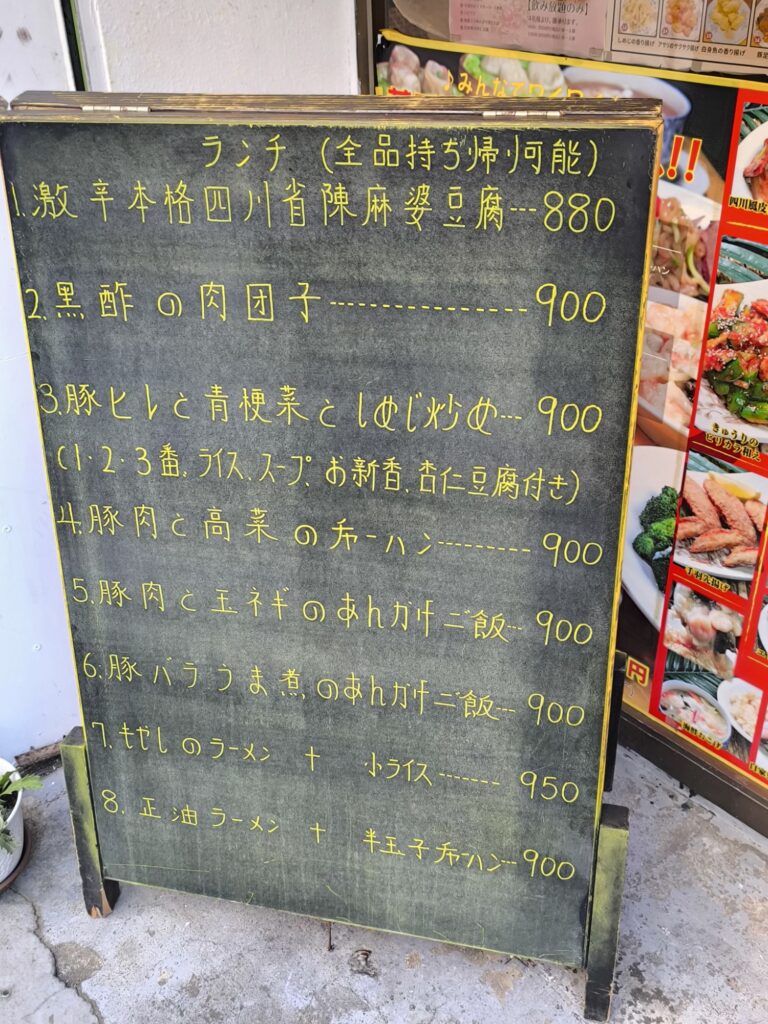 ランチ (全品持ち帰り可能)
1.激辛本格四川省陳麻婆豆腐---880
2.黒酢の肉団子---------------900
3.豚ヒレと青梗菜としめじ炒め---900
(1・2・3番、ライス、スープ、お新香、杏仁豆腐付き)
4.豚肉と高菜のチャーハン---------900
5.豚肉と玉ネギのあんかけご飯---900
6.豚バラうま煮のあんかけご飯---900
7.もやしのラーメン + 小ライス-------950
8.正油ラーメン + 半玉子チャーハン---900
【飲み放題のみ】
しめじの香り揚げ
白身魚の香り揚げ
♪みんなでワイワ
!!
四川風皮
きゅうりの
ピリカラ和え
手羽先揚げ
円